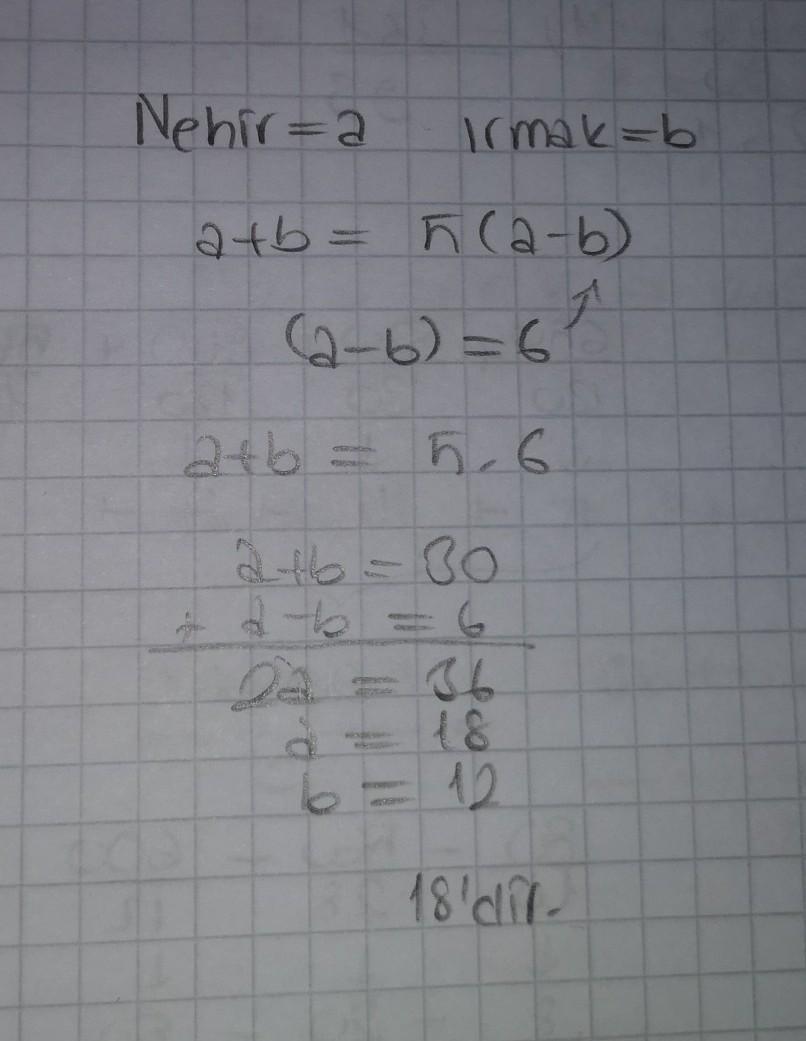 Nehir = a Irmak = b
a+b = 5(a-b)
(a-b) = 6
a+b = 5.6
a+b = 30
+ a-b = 6
2a = 36
a = 18
b = 12
18'dir.